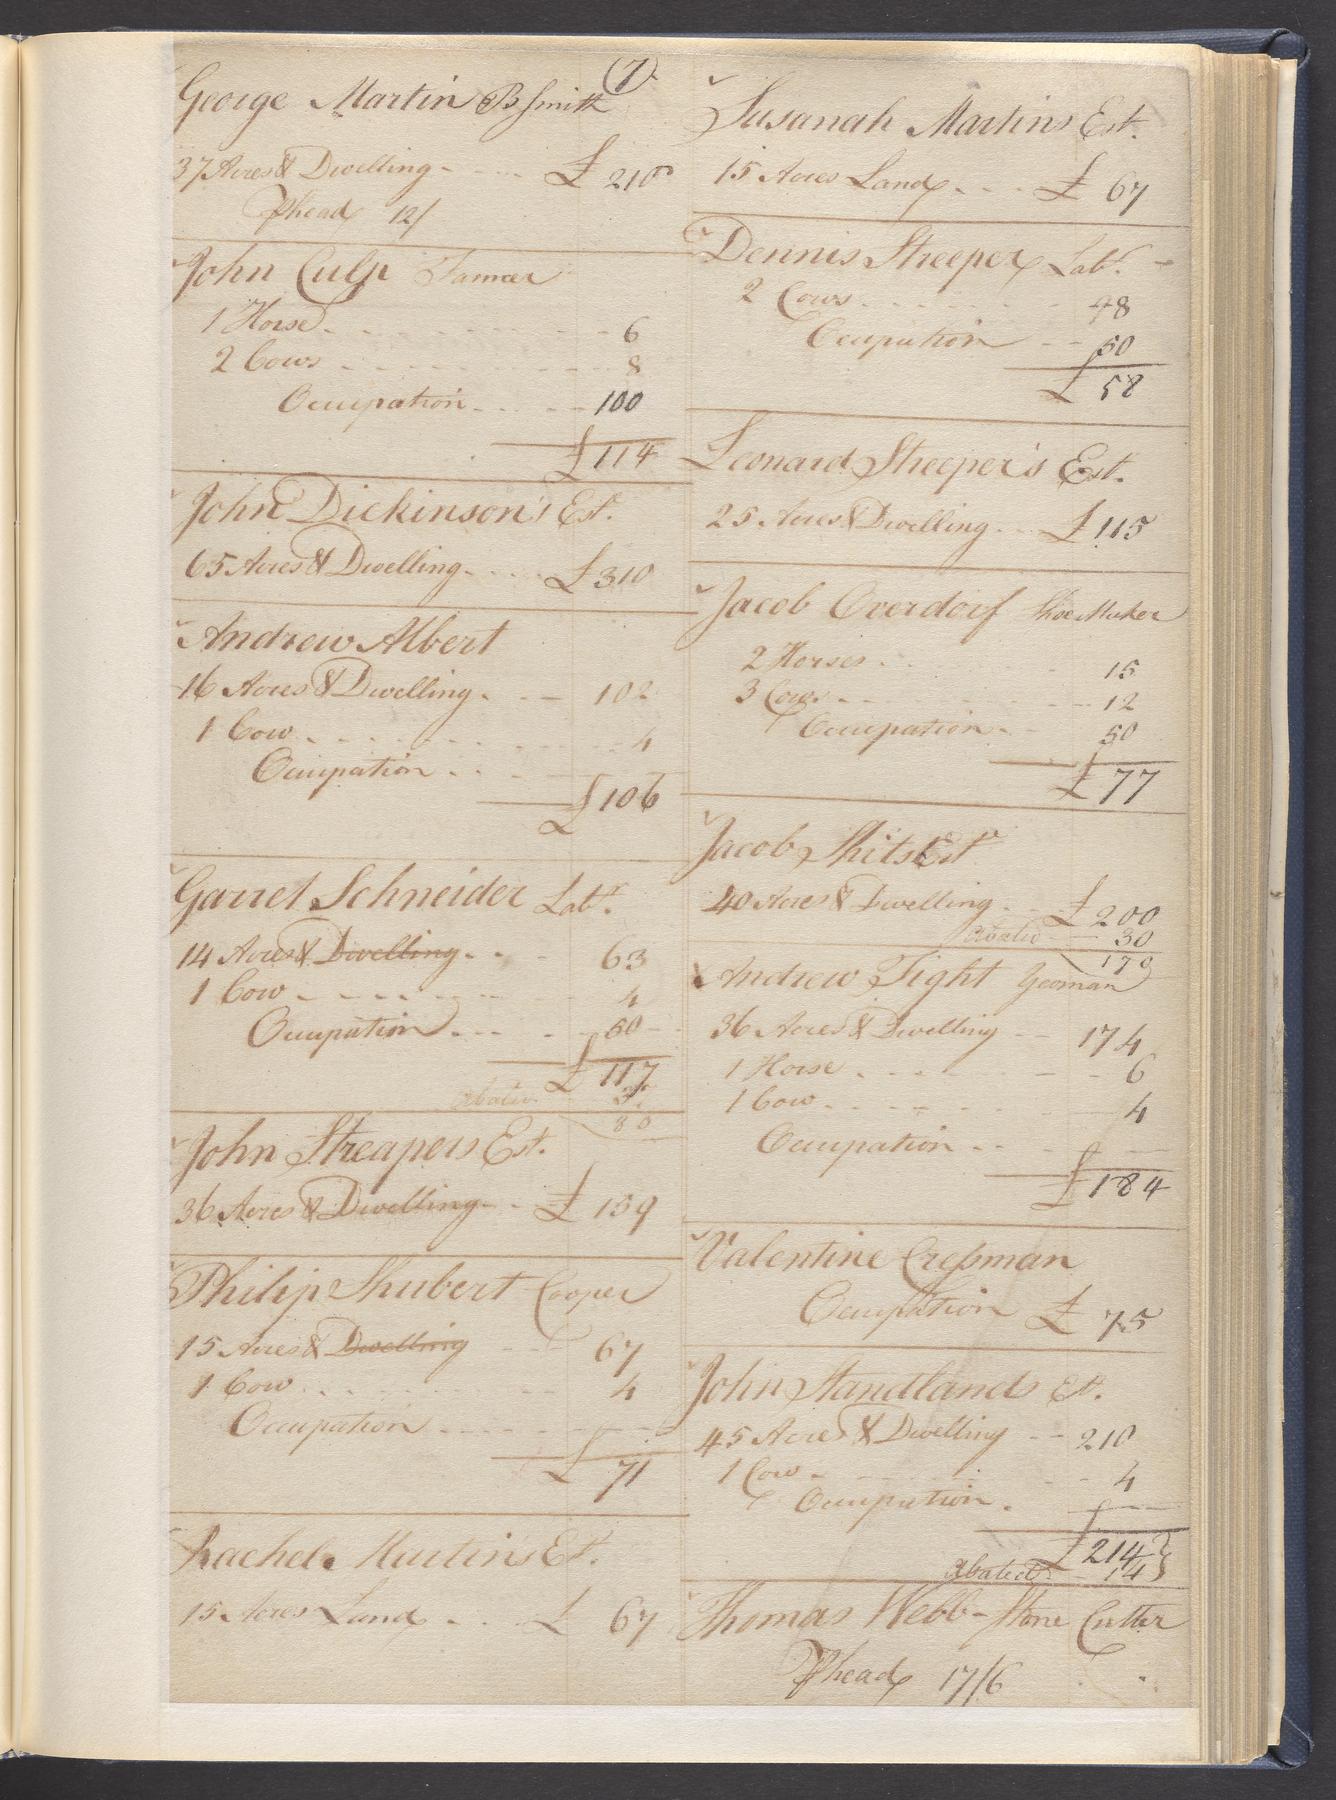 (7)
George Martin BSmith
37 Acres & Dwelling £ 210
Phead 12/
John Culp Tanner
1 Horse 6
2 Cows 8
Occupation 100
£ 114
John Dickinson's Est.
65 Acres & Dwelling £ 310
Andrew Albert
16 Acres & Dwelling 102
1 Cow 4
Occupation
£ 106
Garret Schneider Labr.
14 Acres & Dwelling 63
1 Cow 4
Occupation 50
£ 117
Abated
80
John Streapers Est.
36 Acres & Dwelling £ 159
Philip Shubert Cooper
15 Acres & Dwelling 67
1 Cow 4
Occupation
£ 71
Rachel Martin's Est.
15 Acres Land £ 67
Susanah Martins Est.
15 Acres Land £ 67
Dennis Streeper Labr.
2 Cows 8
Occupation 50
£ 58
Leonard Streeper's Est.
25 Acres & Dwelling £ 115
Jacob Overdorf Shoe Maker
2 Horses 15
3 Cows 12
Occupation 50
£ 77
Jacob Est
40 Acres & Dwelling £ 200
Abated 30
170
Andrew Tight Yeoman
36 Acres & Dwelling 174
1 Horse 6
1 Cow 4
Occupation
£ 184
Valentine Cressman
Occupation £ 75
John Standlands Est.
45 Acres & Dwelling 210
1 Cow 4
Occupation
£ 214
Abated 14
Thomas Webb - Stone Cutter
Phead 17/6